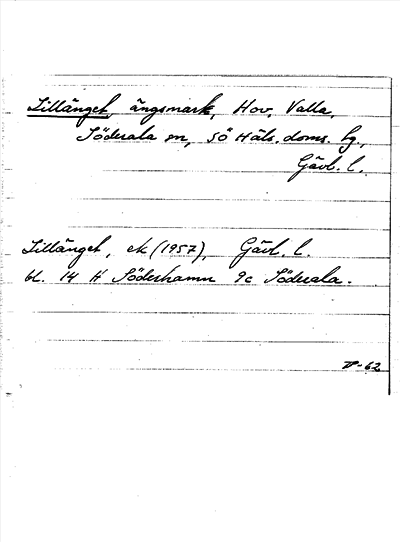 Lillänget, ängsmark, Hov, Valla,
Söderala sn, sö Häls. doms. lg.,
Gävl. l.
Lillänget, ek (1957), Gävl. l.
bl. 14 H Söderhamn 9c Söderala.
-62